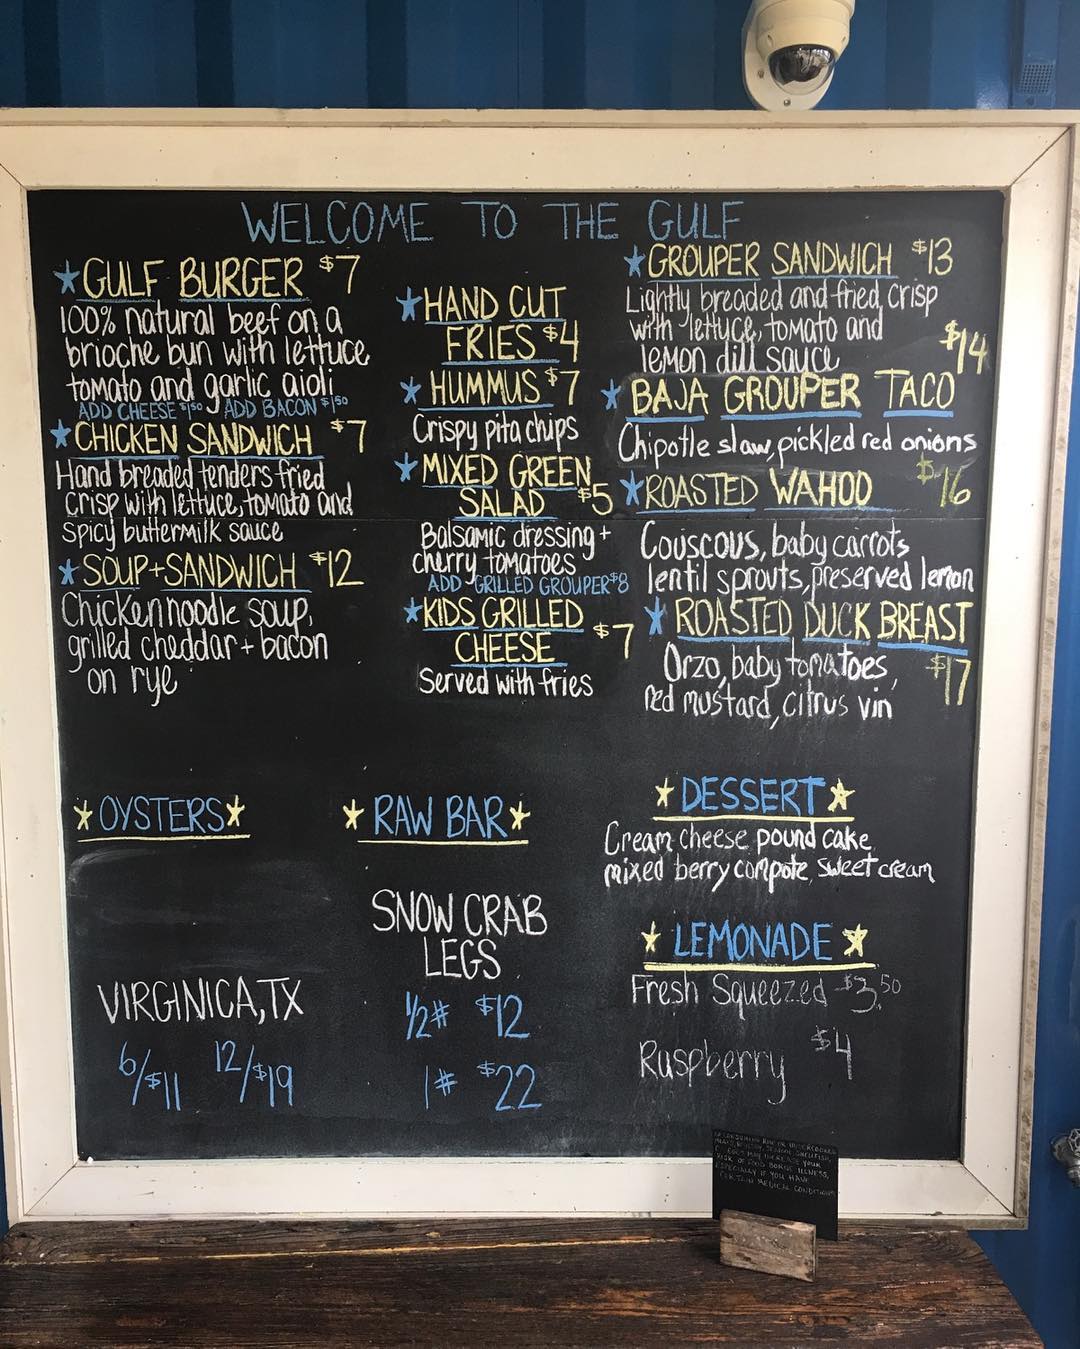 WELCOME TO THE GULF
GULF BURGER $7
100% natural beef on a
brioche bun with lettuce
tomato and garlic aioli
ADD CHEESE $1.50 ADD BACON $1.50
CHICKEN SANDWICH $7
Hand breaded tenders fried
crisp with lettuce, tomato and
spicy buttermilk sauce
SOUP+SANDWICH $12
Chicken noodle soup,
grilled cheddar + bacon
on rye
HAND CUT
FRIES $4
HUMMUS $7
Crispy pita chips
MIXED GREEN
SALAD $5
Balsamic dressing +
cherry tomatoes
ADD GRILLED GROUPER $8
KIDS GRILLED
CHEESE $7
Served with fries
GROUPER SANDWICH $13
Lightly breaded and fried crisp
with lettuce, tomato and
lemon dill sauce
$14
BAJA GROUPER TACO
Chipotle slaw, pickled red onions
ROASTED WAHOO $16
Couscous, baby carrots
lentil sprouts, preserved lemon
ROASTED DUCK BREAST
Orzo, baby tomatoes, $17
red mustard, citrus vin
OYSTERS
VIRGINICA, TX
6/$11 12/$19
RAW BAR
SNOW CRAB
LEGS
1/2# $12
1# $22
DESSERT
Cream cheese pound cake
mixed berry compote, sweet cream
LEMONADE
Fresh Squeezed $3.50
Ruspberry $4
CONSUMING RAW OR UNDERCOOKED
MEATS, POULTRY, SEAFOOD, SHELLFISH,
EGGS MAY INCREASE YOUR
RISK OF FOOD BORNE ILLNESS,
ESPECIALLY IF YOU HAVE
CERTAIN MEDICAL CONDITIONS